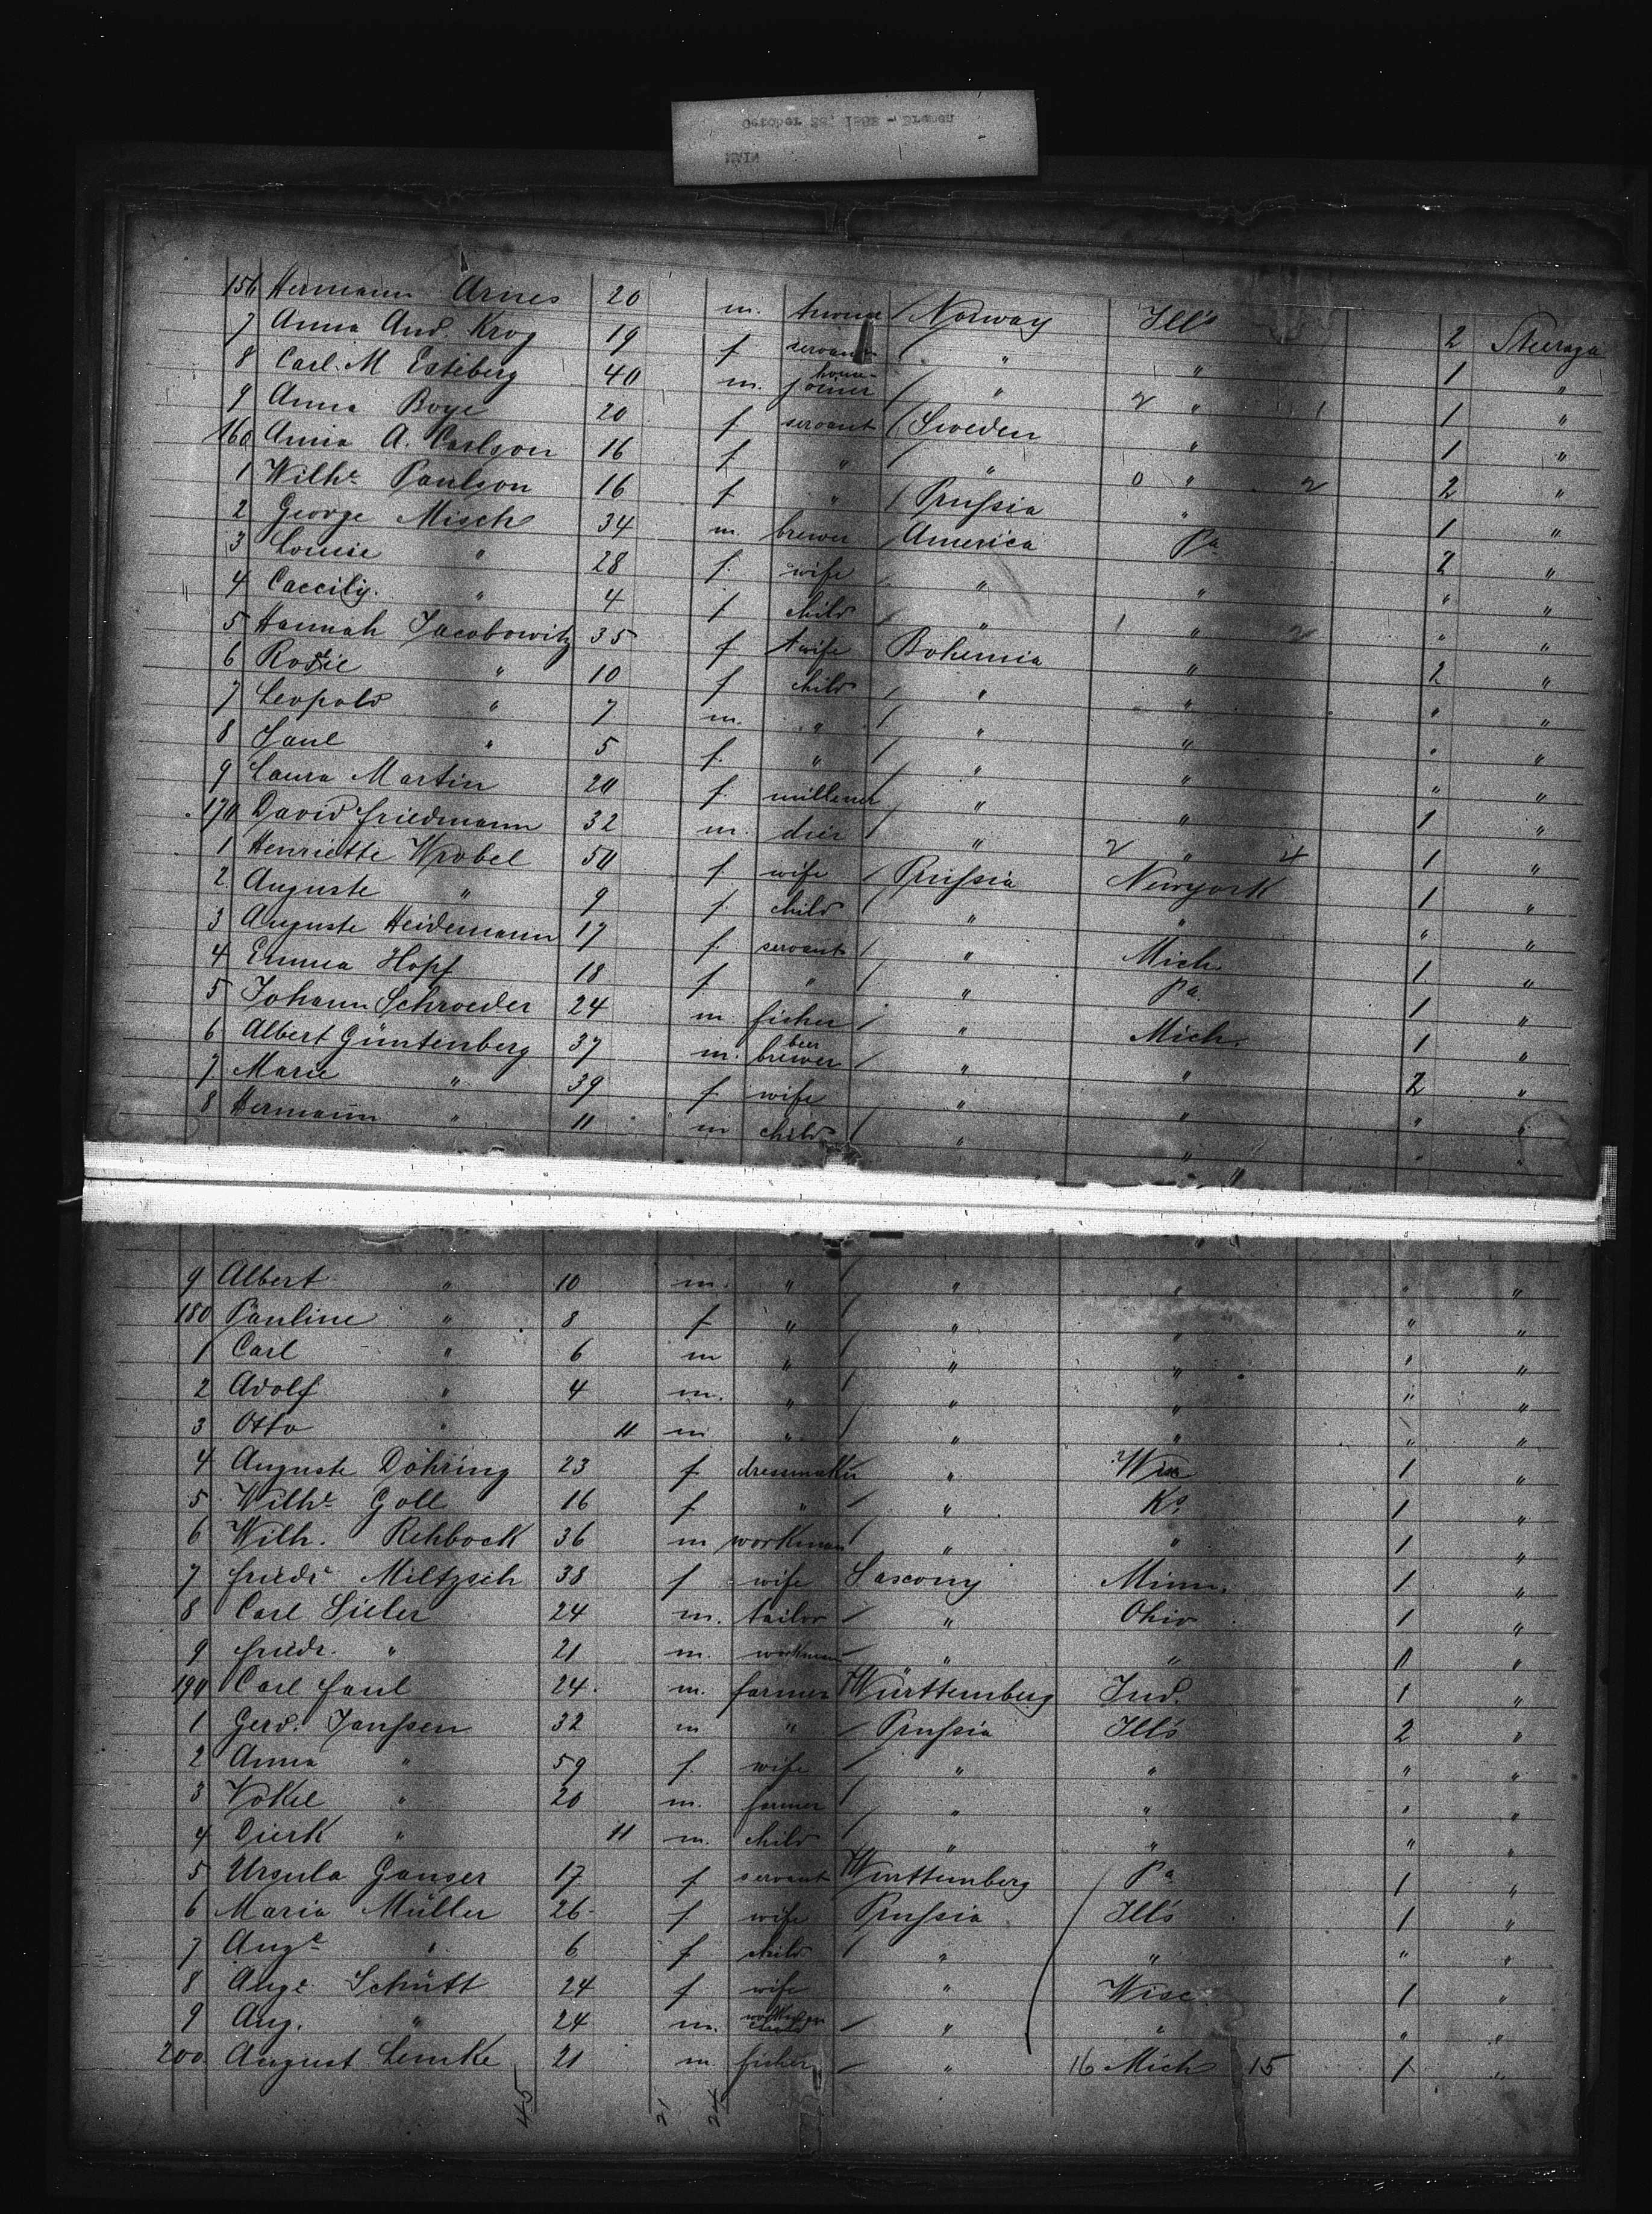 October 28, 1882 - Bremen
MAIN
156 Hermann Arnes 20 m. Norway Ill's 2 Steerage
7 Anna And. Krog 19 f servant " " 1 "
8 Carl. M Estiberg 40 m. house-joiner " 2 " 1 1 "
9 Anna Boye 20 f servant Sweden " 1 "
160 Anna A. Carlson 16 f " " 0 " 2 2 "
1 Wilh.e Paulson 16 f " Prussia " 1 "
2 George Misch 34 m. brewer America Pa 2 "
3 Louise " 28 f. wife " " " "
4 Caecilij. " 4 f child " 1 " 2 " "
5 Hannah Jacobowitz 35 f wife Bohemia " 2 "
6 Rosie " 10 f child " " " "
7 Leopold " 7 m. " " " " "
8 Jane " 5 f. " " " " "
9 Laura Martin 20 f. milliner " " 1 "
170 David Friedmann 32 m. dier " 2 " 4 1 "
1 Henriette Wrobel 50 f wife Prussia Newyork 1 "
2 Auguste " 9 f. child " " " "
3 Auguste Heidemann 17 f. servant " Mich. 1 "
4 Emma Hopf 18 f " " Pa. 1 "
5 Johann Schroeder 24 m. ficher " Mich. 1 "
6 Albert Güntenberg 37 m. beer brewer " " 2 "
7 Marie " 39 f. wife " " " "
8 Hermann " 11 m child " " " "
9 Albert " 10 m. " " " " "
180 Pauline " 8 f " " " " "
1 Carl " 6 m " " " " "
2 Adolf " 4 m. " " " " "
3 Otto " 11 m " " " " "
4 Auguste Döhring 23 f. dressmaker " Wis 1 "
5 Wilh.e Goll 16 f " " Ks. 1 "
6 Wilh. Rehbock 36 m workman " " 1 "
7 Friedr. Miltzsch 38 f wife Sascony Minn. 1 "
8 Carl Sieler 24 m. tailor " Ohio 1 "
9 Friedr. " 21 m. workman " " "
190 Carl Faul 24. m. farmer Württemberg Ind. 1 "
1 Gerd. Janssen 32 m " Prussia Ill's 2 "
2 Anna " 59 f. wife " " " "
3 Vokel " 20 m. farmer " " " "
4 Dierk " 11 m. child " " " "
5 Ursula Ganser 17 f servant Wurttemberg Pa 1 "
6 Maria Müller 26 f wife Prussia Ill's 1 "
7 Aug.e " 6 f child " " " "
8 Aug.e Schütt 24 f wife " Wisc. 1 "
9 Aug. " 24 m. " " " "
200 August Lemke 21 m ficher " 16 Mich 15 1 "
45 21 24